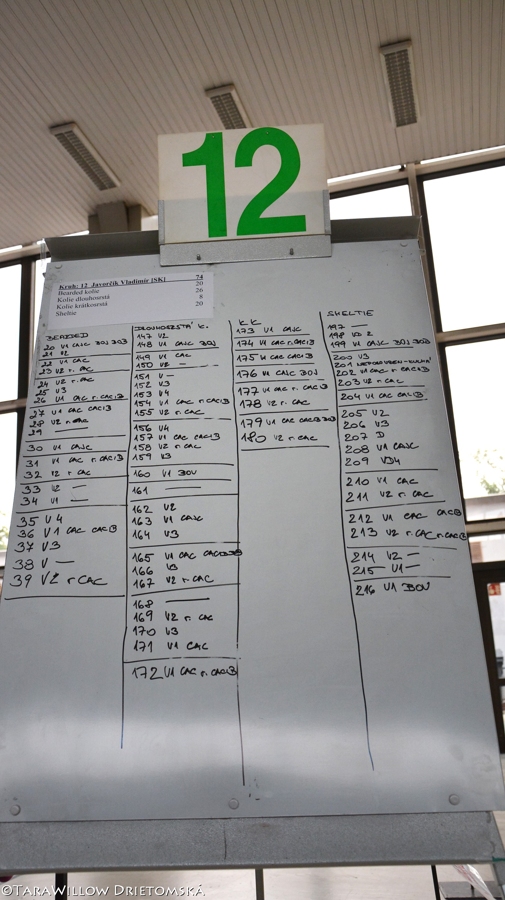 12
Kruh: 12 Javorčík Vladimír [SK] 74
Bearded kolie 20
Kolie dlouhosrstá 26
Kolie krátkosrstá 8
Sheltie 20
BEARDED
20 V1 CAJC BOJ BOB
21 V2
22 V1 CAC
23 V2 r. CAC
24 V2 r. CAC
25 V3
26 V1 CAC r. CACIB
27 V1 CAC CACIB
28 V2 r. CAC
29 —
30 V1 CAJC
31 V1 CAC r. CACIB
32 V2 r. CAC
33 V2 —
34 V1 —
35 V4
36 V1 CAC CACIB
37 V3
38 V —
39 V2 r. CAC
DLOUHOSRSTÁ K.
147 V2
148 V1 CAJC BOJ
149 V1 CAC
150 V2 —
151 V —
152 V3
153 V4
154 V1 CAC r. CACIB
155 V2 r. CAC
156 V4
157 V1 CAC CACIB
158 V2 r. CAC
159 V3
160 V1 BOV
161 —
162 V2
163 V1 CAJC
164 V3
165 V1 CAC
166 V3
167 V2 r. CAC
168 —
169 V2 r. CAC
170 V3
171 V1 CAC
172 V1 CAC r. CACIB
K K
173 V1 CAJC
174 V1 CAC r. CACIB
175 V1 CAC CACIB
176 V1 CAJC BOJ
177 V1 CAC r. CACIB
178 V2 r. CAC
179 V1 CAC CACIB BOB
180 V2 r. CAC
SHELTIE
197 —
198 VD 2
199 V1 CAJC BOJ BOB
200 V3
201
202 V1 CAC r. CACIB
203 V2 r. CAC
204 V1 CAC CACIB
205 V2
206 V3
207 D
208 V1 CAJC
209 VD4
210 V1 CAC
211 V2 r. CAC
212 V1 CAC CACIB
213 V2 r. CAC r. CACIB
214 V2 —
215 V1 —
216 V1 BOV
©TaraWillow Drietomská